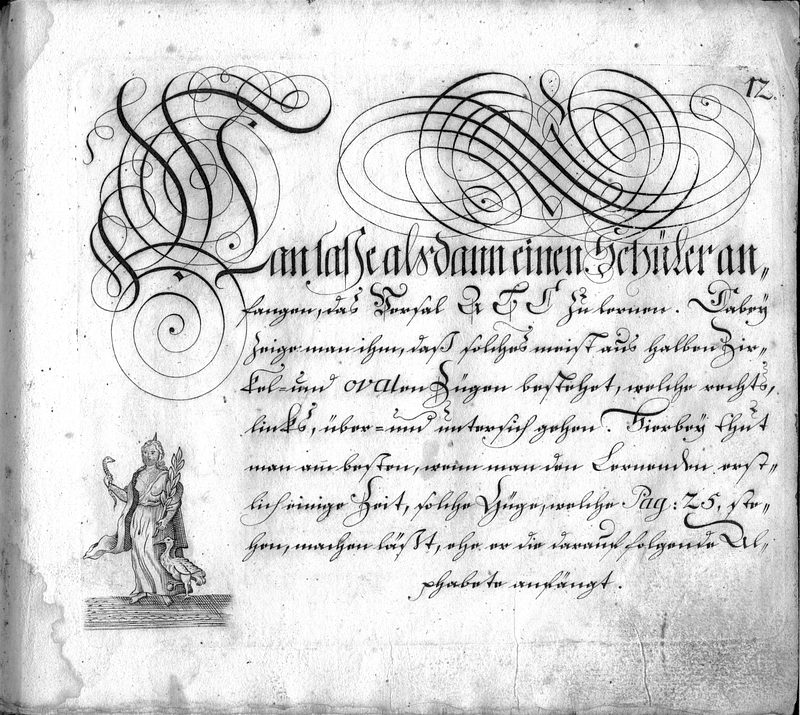 12.
Man lasse alsdann einen Schüler an„
fangen, das Versal A B C zu lernen. Dabey
zeige man ihm, daß solches meist aus halben Zir„
kel= und ovalen Zügen bestehet, welche rechts,
links, über= und untersich gehen. Hierbey thut
man am besten, wenn man den Lernenden erst„
lich einige Zeit, solche Züge, welche Pag: 25. ste„
hen, machen läßt, ehe er die darauf folgende Al„
phabete anfängt.